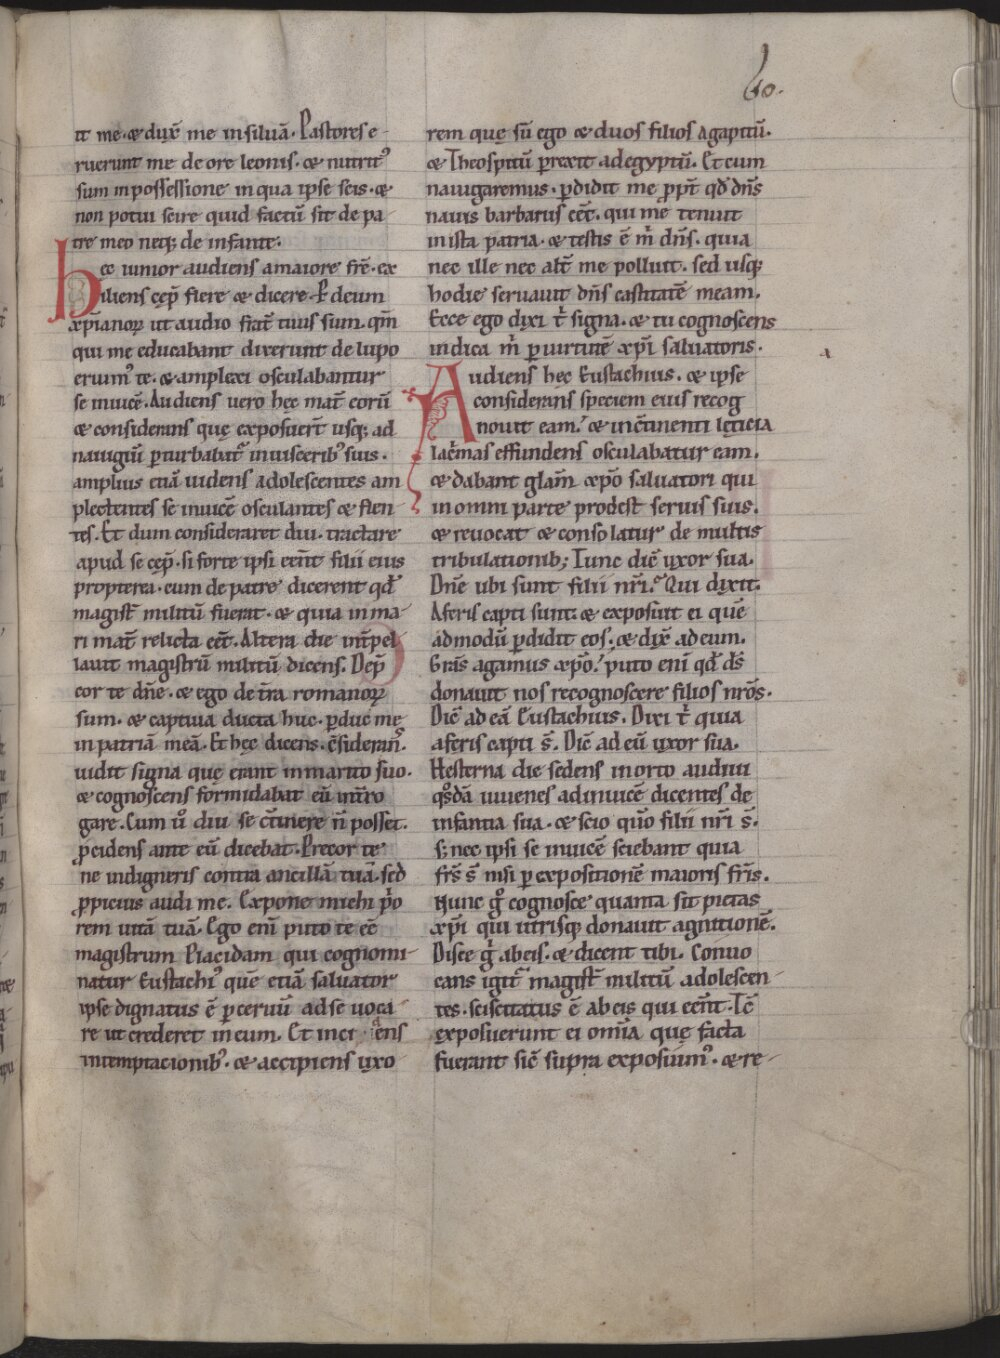 60.
it me. & dux̄ me in siluā. Pastores e-
ruerunt me de ore leonis. & nutrit᷒
sum in possessione in qua ipse scis. &
non potui scire quid factū sit de pa-
tre meo neq; de infante.
Hec iunior audiens a maiore fr̄e. ex
iliens cęp̄ flere & dicere. P̄ deum
xp̄ianoꝝ ut audio frat̄ tuus sum. qm̄
qui me educabant dixerunt de lupo
eruim᷒ te. & amplexi osculabantur
se inuicē. Audiens uero hęc mat̄ eorū
& considerans quę exposuer̄t usq; ad
nauigiū ꝑturbabat᷑ in uiscerib᷒ suis.
amplius etiā uidens adolescentes am
plectentes se inuicē osculantes & flen
tes. Et dum consideraret diu. tractare
apud se cęp̄. si forte ipsi eēnt filii eius
propterea. cum de patre dicerent qđ
magist̄ militū fuerat. & quia in ma-
ri mat̄ relicta eēt. Altera die int̄pel
lauit magistrū militū dicens. Dep̄
cor te dn̄e. & ego de t̄ra romanoꝝ
sum. & captiua ducta huc. ꝑduc mę
in patriā meā. Et hęc dicens. c̄siderans.
uidit signa quę erant in marito suo.
& cognoscens formidabat eū int̄ro
gare. Cum ū diu se c̄tinere n̄ posset.
ꝓcidens ante eū dicebat. Precor te
ne indigneris contra ancillā tuā. sed
ꝓpicius audi me. Expone michi p̄o
rem uitā tuā. Ego eni puto te eē
magistrum Placidam qui cognomi-
natur Eustachi᷒ quē etiā saluator
ipse dignatus ē ꝑ ceruū ad se uoca-
re ut crederet in eum. Et inci ens
in temptacionib᷒. & accipiens uxo
rem quę sū ego & duos filios Agapitū.
& Theospitū perrexit ad egyptū. Et cum
nauigaremus. ꝑdidit me ꝓpt̄ qđ dn̄s
nauis barbarus eēt. qui me tenuit
in ista patria. & testis ē m̄ dn̄s. quia
nec ille nec alt̄ me polluit. sed usq;
hodie seruauit dn̄s castitatē meam.
Ecce ego dixi t̄ signa. & tu cognoscens
indica m̄ ꝑ uirtutē xp̄i saluatoris.
Audiens hec Eustachius. & ipse
considerans speciem eius recog
nouit eam. & in c̄tinenti lęticia
lac̄mas effundens osculabatur eam.
& dabant glam̄ xp̄o saluatori qui
in omni parte prodest seruis suis.
& reuocat & consolatur de multis
tribulationib; Tunc dic̄ uxor sua.
Dn̄e ubi sunt filii nr̄i? Qui dixit.
A feris capti sunt. & exposuit ei quē
admodū ꝑdidit eos. & dix̄ ad eum.
Gras̄ agamus xp̄o. puto eni qđ ds̄
donauit nos recognoscere filios nr̄os.
Dic̄ ad eā Eustachius. Dixi t̄ quia
a feris capti s̄. Dic̄ ad eū uxor sua.
Hesterna die sedens in orto audiui
qsdā iuuenes ad inuicē dicentes de
infantia sua. & scio quō filii nr̄i s̄.
s; nec ipsi se inuicē sciebant quia
frs̄ s̄ nisi ꝑ expositionē maioris fr̄is.
Nunc gͦ cognosce quanta sit pietas
xp̄i qui utrisq; donauit agnitionē.
Disce gͦ ab eis. & dicent tibi. Conuo
cans igit᷑ magist̄ militū adolescen-
tes. sciscitatus ē ab eis qui eēnt. Ic̄
exposuerunt ei omīa quę facta
fuerant sic̄ supra exposuim᷒. & re-